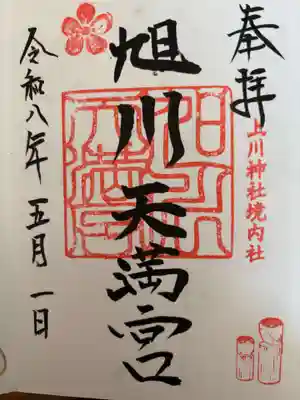 奉拝
上川神社境内社
旭川天満宮
令和八年五月一日